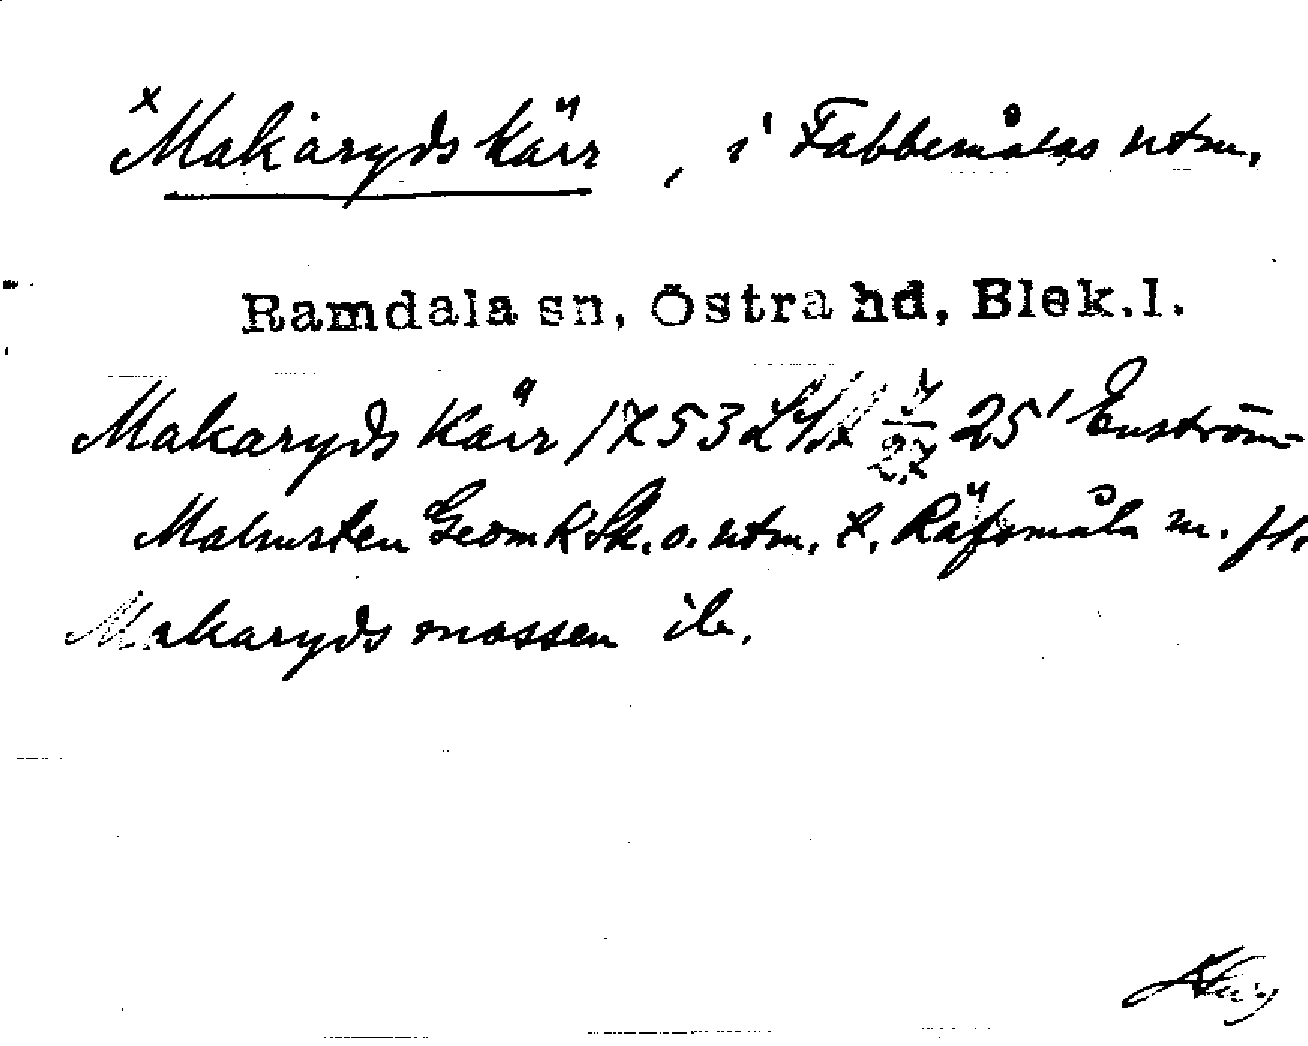 x Makaryds kärr, i Fabbemålas utm.
Ramdala sn, Östra hd, Blek.l.
Makaryds Kärr 1753 LSA 25' Enström-
Malmsten Geom k Sk. o. utm. t. Räfsmåla m. fl.
Makaryds mossen ib.